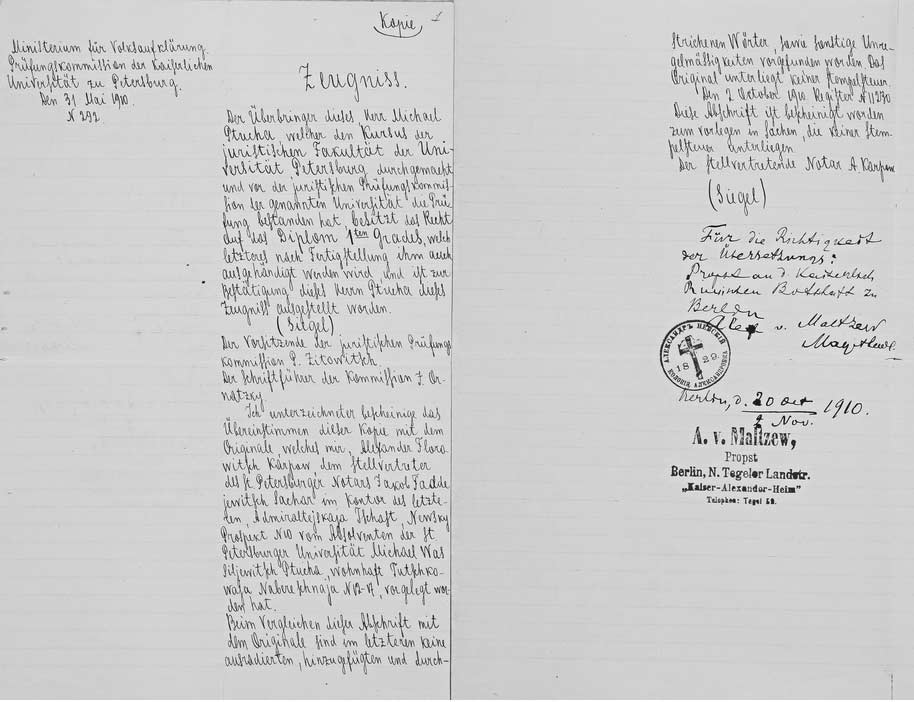 Kopie
1
Ministerium für Volksaufklärung.
Prüfungskommission der Kaiserlichen
Universität zu Petersburg.
Den 31 Mai 1910.
N 292.
Zeugniss.
Der Überbringer dieses, Herr Michael
Ptucha, welcher den Kursus der
juristischen Fakultät der Uni-
versität Petersburg durchgemacht
und vor der juristischen Prüfungskommis-
sion der genannten Universität die Prü-
fung bestanden hat, besitzt das Recht
auf das Diplom 1ten Grades, welch
letzteres nach Fertigstellung ihm auch
ausgehändigt werden wird, und ist zur
Bestätigung dieses Herrn Ptucha dieses
Zeugniss ausgestellt worden.
(Siegel)
Der Vorsitzende der juristischen Prüfungs
kommission P. Zitowitsch.
Der Schriftführer der Kommission F. Or-
natzky.
Ich unterzeichneter bescheinige das
Übereinstimmen dieser Kopie mit dem
Originale, welches mir, Alexander Floro-
witsch Karpow, dem Stellvertreter
des St. Petersburger Notars Jakob Fadde
jewitsch Sachar im Kontor des letzte-
ren, Admiraltejskaja Tschast, Newsky
Prospekt N10 vom Absolventen der St.
Petersburger Universität Michael Was
siljewitsch Ptucha, wohnhaft Tutschko-
waja Nabereschnaja N12-17, vorgelegt wor-
den hat.
Beim Vergleichen dieser Abschrift mit
dem Originale sind im letzteren keine
ausradierten, hinzugefügten und durch-
strichenen Wörter, sowie sonstige Unre-
gelmässigkeiten vorgefunden worden. Das
Original unterliegt keiner Stempelsteuer.
Den 2 October 1910. Register N 11230
Diese Abschrift ist bescheinigt worden
zum vorlegen in Sachen, die keiner Stem-
pelsteuer unterliegen.
Der stellvertretende Notar A. Karpow
(Siegel)
Für die Richtigkeit
der Übersetzung:
Propst an d. Kaiserlich
Russischen Botschaft zu
Berlin
Alex v. Maltzew
АЛЕКСАНДРЪ НЕВСКІЙ
18 29
Berlin, d. 20 Oct
2 Nov. 1910.
A. v. Maltzew,
Propst
Berlin, N. Tegeler Landstr.
„Kaiser-Alexander-Heim"
Telephon: Tegel 59.